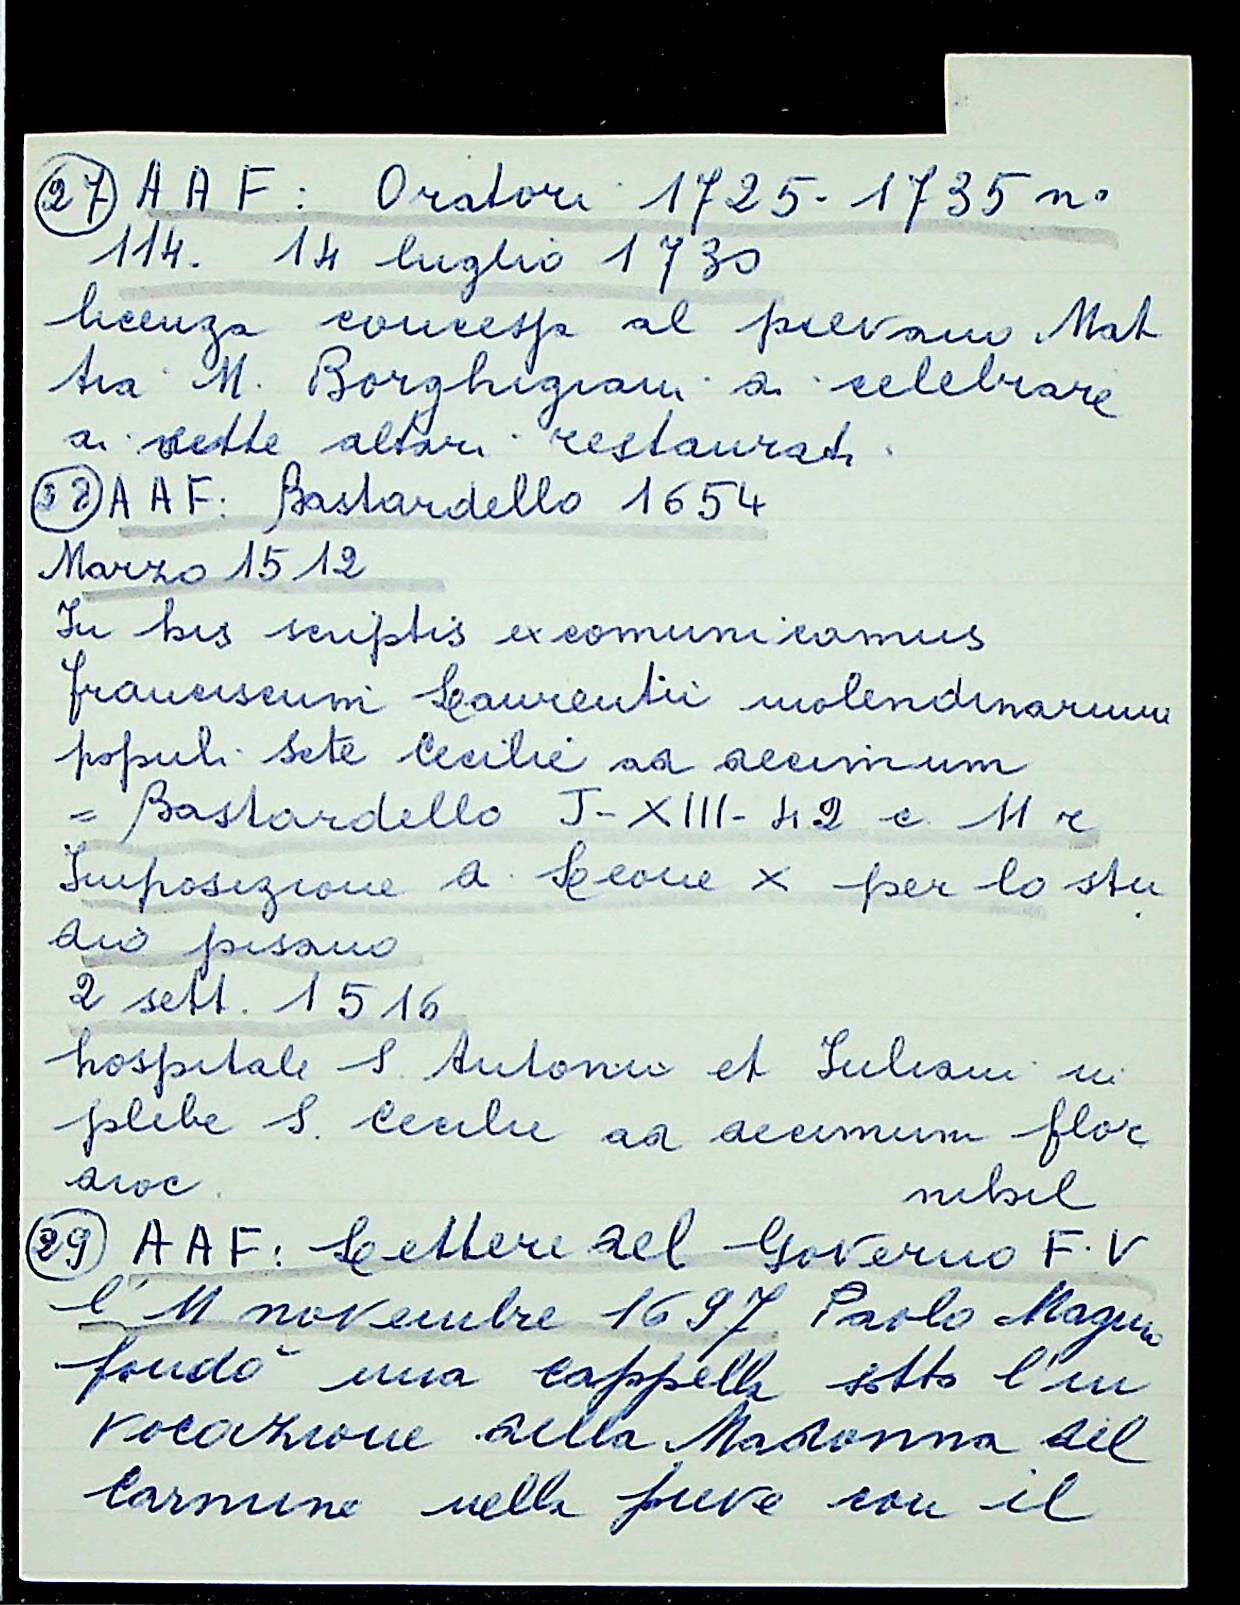 27 A A F: Oratori 1725-1735 n°
114. 14 luglio 1730
licenza concessa al pievano Mat
tia M. Borghigiani a celebrare
ai sette altari restaurati.
28 A A F: Bastardello 1654
Marzo 1512
In his scriptis excomunicamus
franciscum Laurentii molendinarium
populi Scte Cecilie ad decimum
= Bastardello J-XIII-42 c 11 r
Imposizione di Leone X per lo stu
dio pisano
2 sett. 1516
hospitale S. Antonii et Iuliani in
plebe S. Cecilie ad decimum flor
dioc. nihil
29 A A F: Lettere del Governo F. V
l'11 novembre 1697 Paolo
fondò una cappella sotto l'in
vocazione della Madonna del
Carmine nella pieve con il